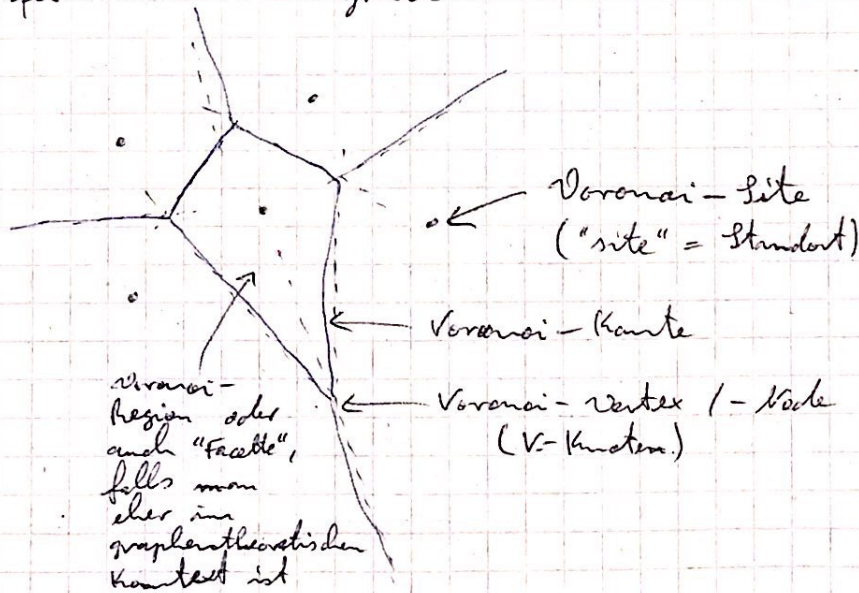 Voronoi-Site
("site" = Standort)
Voronoi-Kante
Voronoi-Vertex / -Node
(V-Knoten)
Voronoi-
Region oder
auch "Facette",
falls man
eher im
graphentheoretischen
Kontext ist